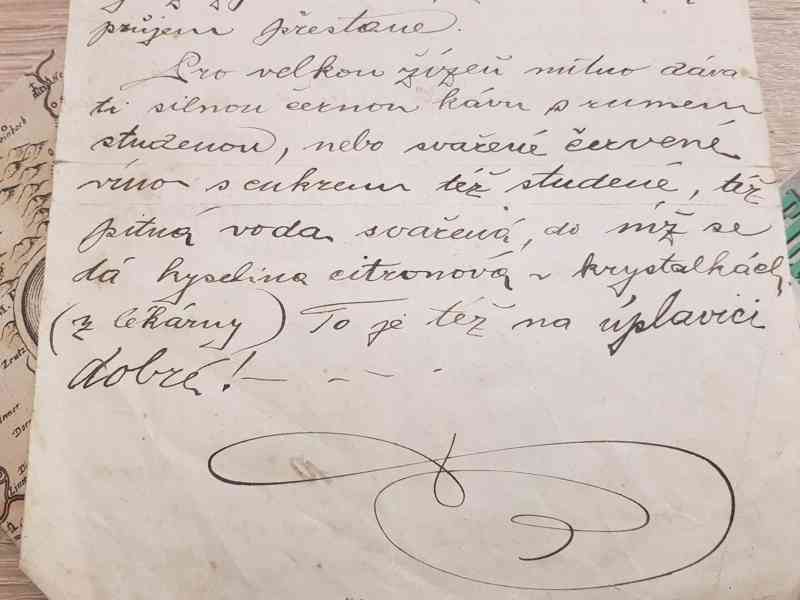 průjem přestane.
Pro velkou žízeň nutno dáva
ti silnou černou kávu s rumem
studenou, nebo svařené červené
víno s cukrem též studené, též
pitná voda svařená, do níž se
dá kyselina citronová v krystalkách
(z lékárny) To je též na úplavici
dobré! — — - .